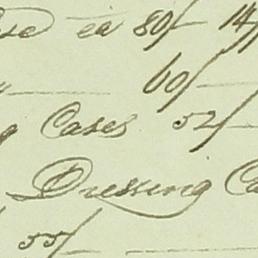 ea 80/ 14/
" 60/
g Cases 52/
Dressing Ca
55/